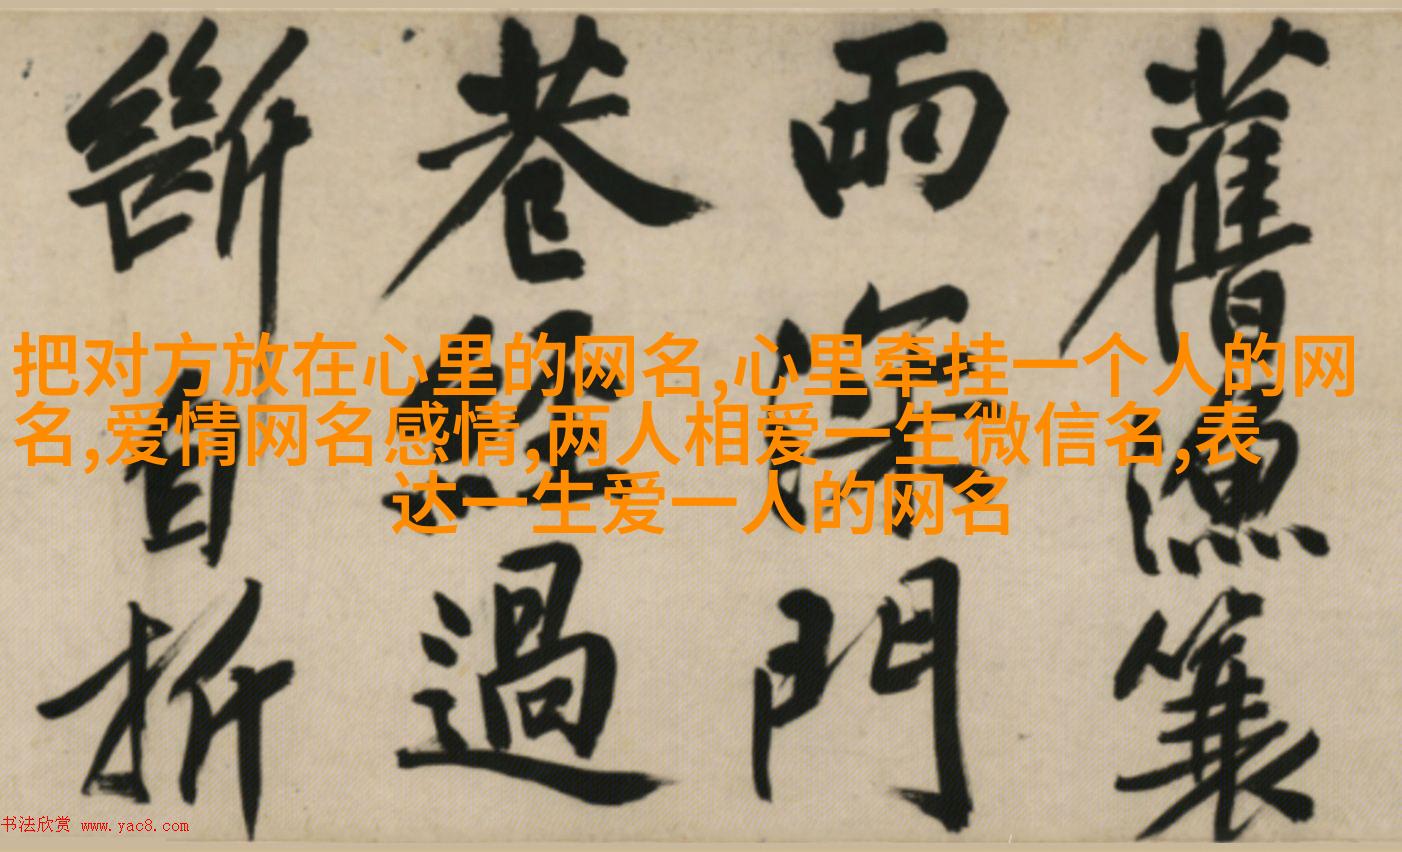 舊漁簑
雨深門
巷經過
斷自折
把对方放在心里的网名,心里牵挂一个人的网
名,爱情网名感情,两人相爱一生微信名,表
达一生爱一人的网名
书法欣赏 www.yac8.com